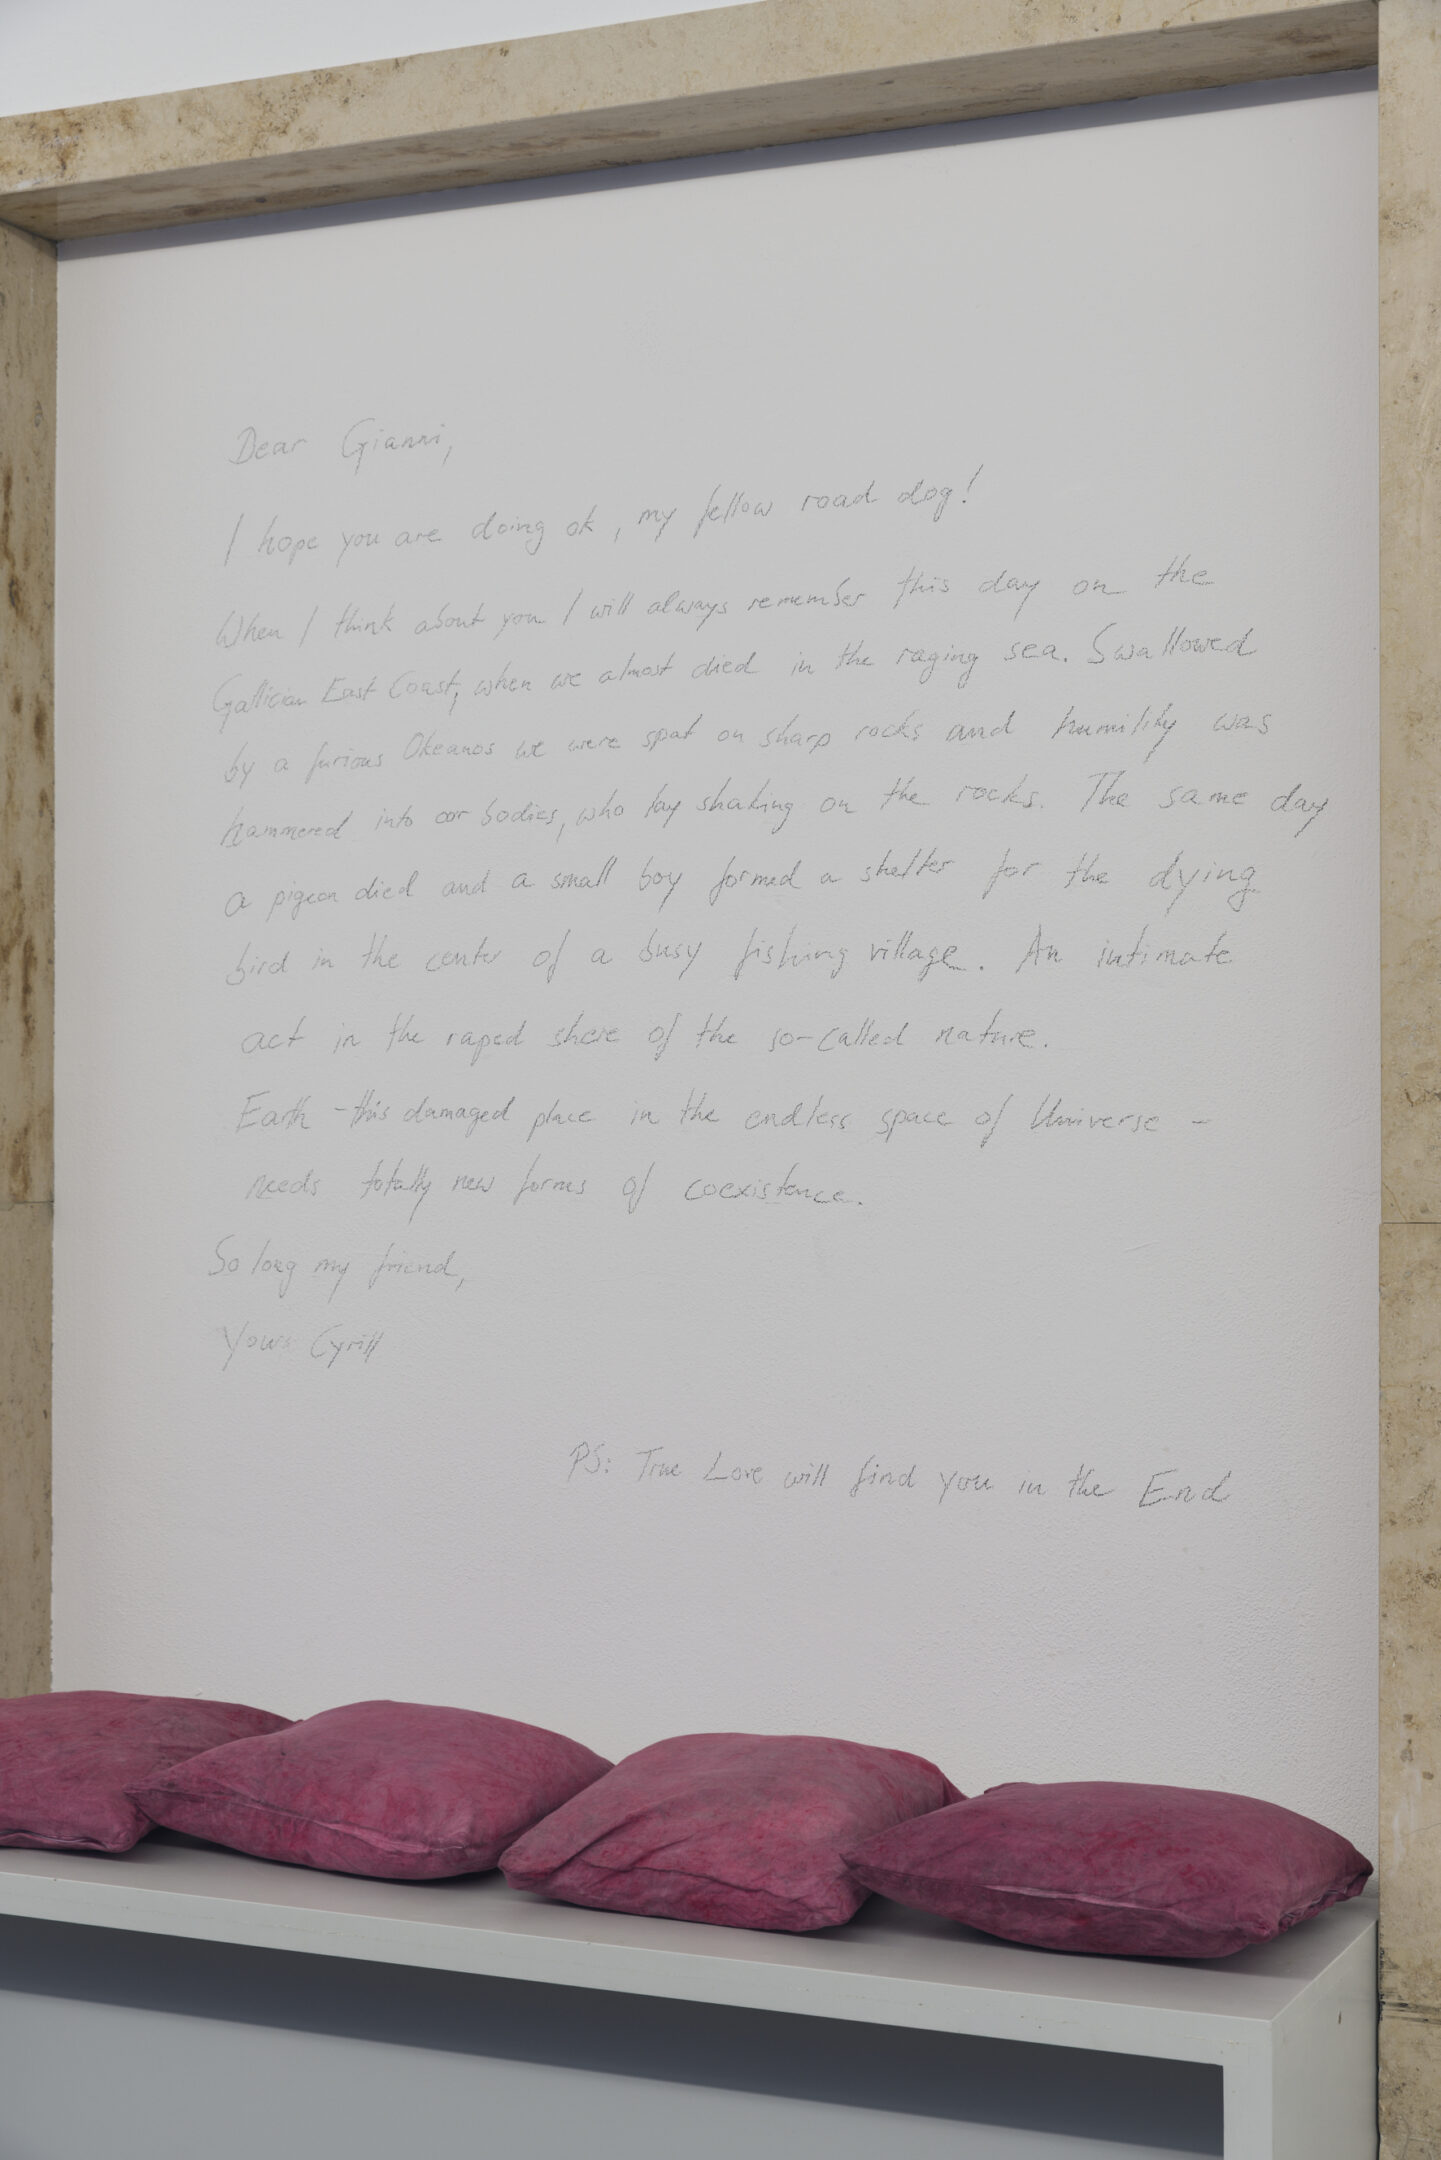 Dear Gianni,
I hope you are doing ok, my fellow road dog!
When I think about you I will always remember this day on the
Gallician East Coast, when we almost died in the raging sea. Swallowed
by a furious Okeanos we were spat on sharp rocks and humility was
hammered into our bodies, who lay shaking on the rocks. The same day
a pigeon died and a small boy formed a shelter for the dying
bird in the center of a busy fishing village. An intimate
act in the raped shere of the so-called nature.
Earth - this damaged place in the endless space of Universe -
needs totally new forms of coexistence.
So long my friend,
Yours Cyrill
PS: True Love will find you in the End